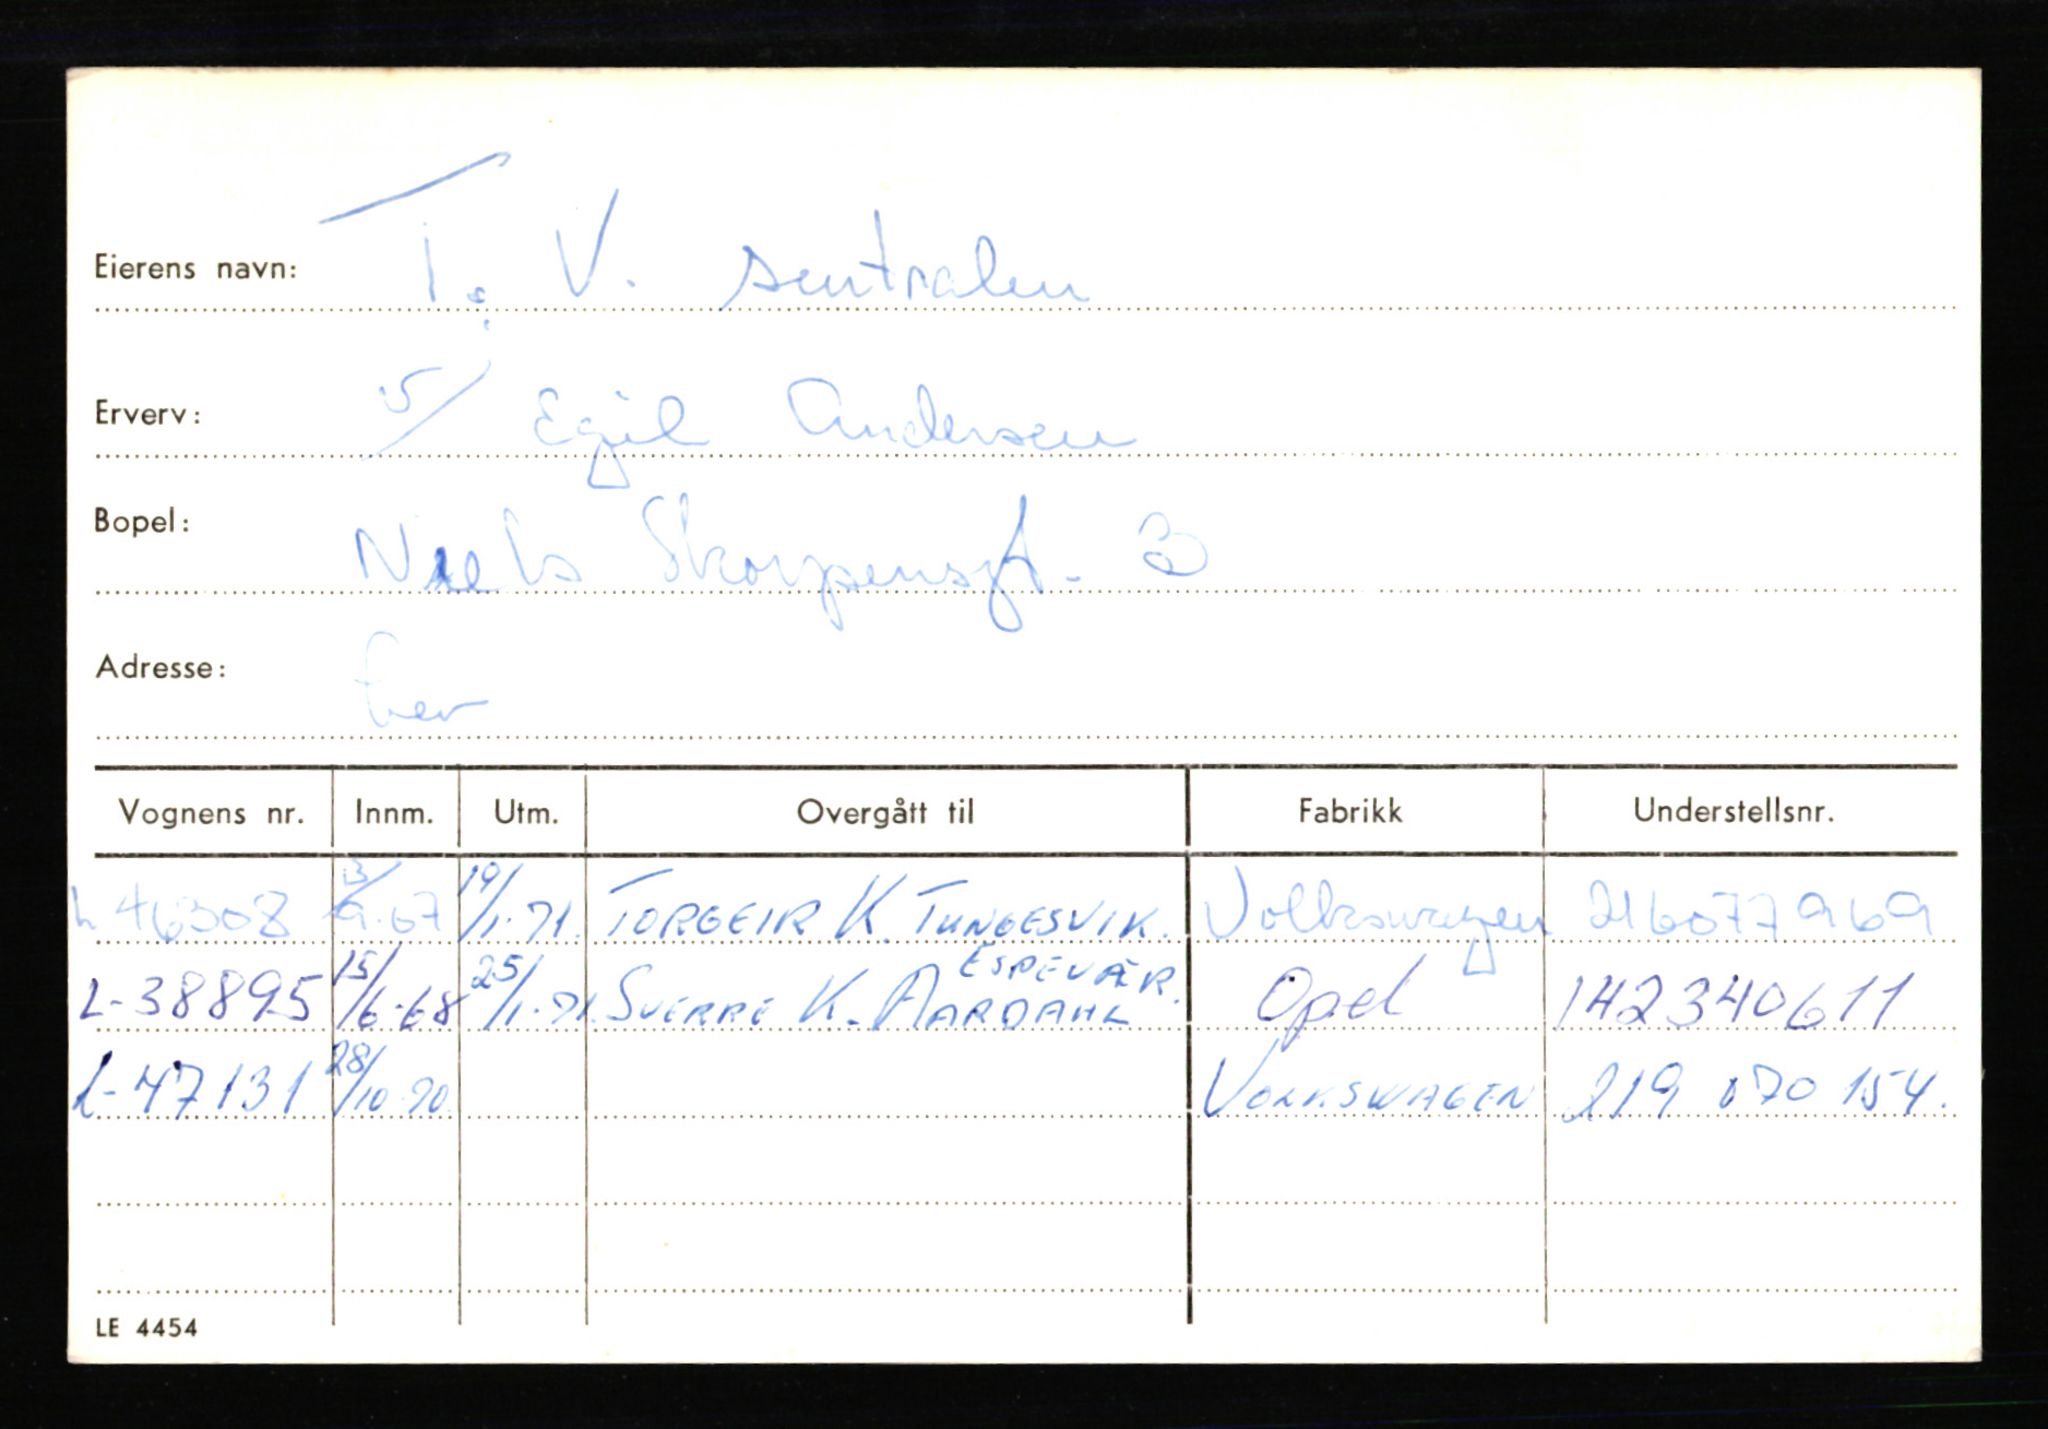 Eierens navn: T. V. sentralen
Erverv: v/ Egil Andersen
Bopel: Niels Skorpensgt. 3
Adresse: her
Vognens nr. Innm. Utm. Overgått til Fabrikk Understellsnr.
L 46308 13/9.67 19/1.71. TORGEIR K. TUNGESVIK. Volkswagen 216077969
ESPEVÆR.
L-38895 15/6-68 25/1.71. SVERRE K. AARDAHL Opel 142340611
L-47131 28/10.70 VOLKSWAGEN 219 070 154.
LE 4454